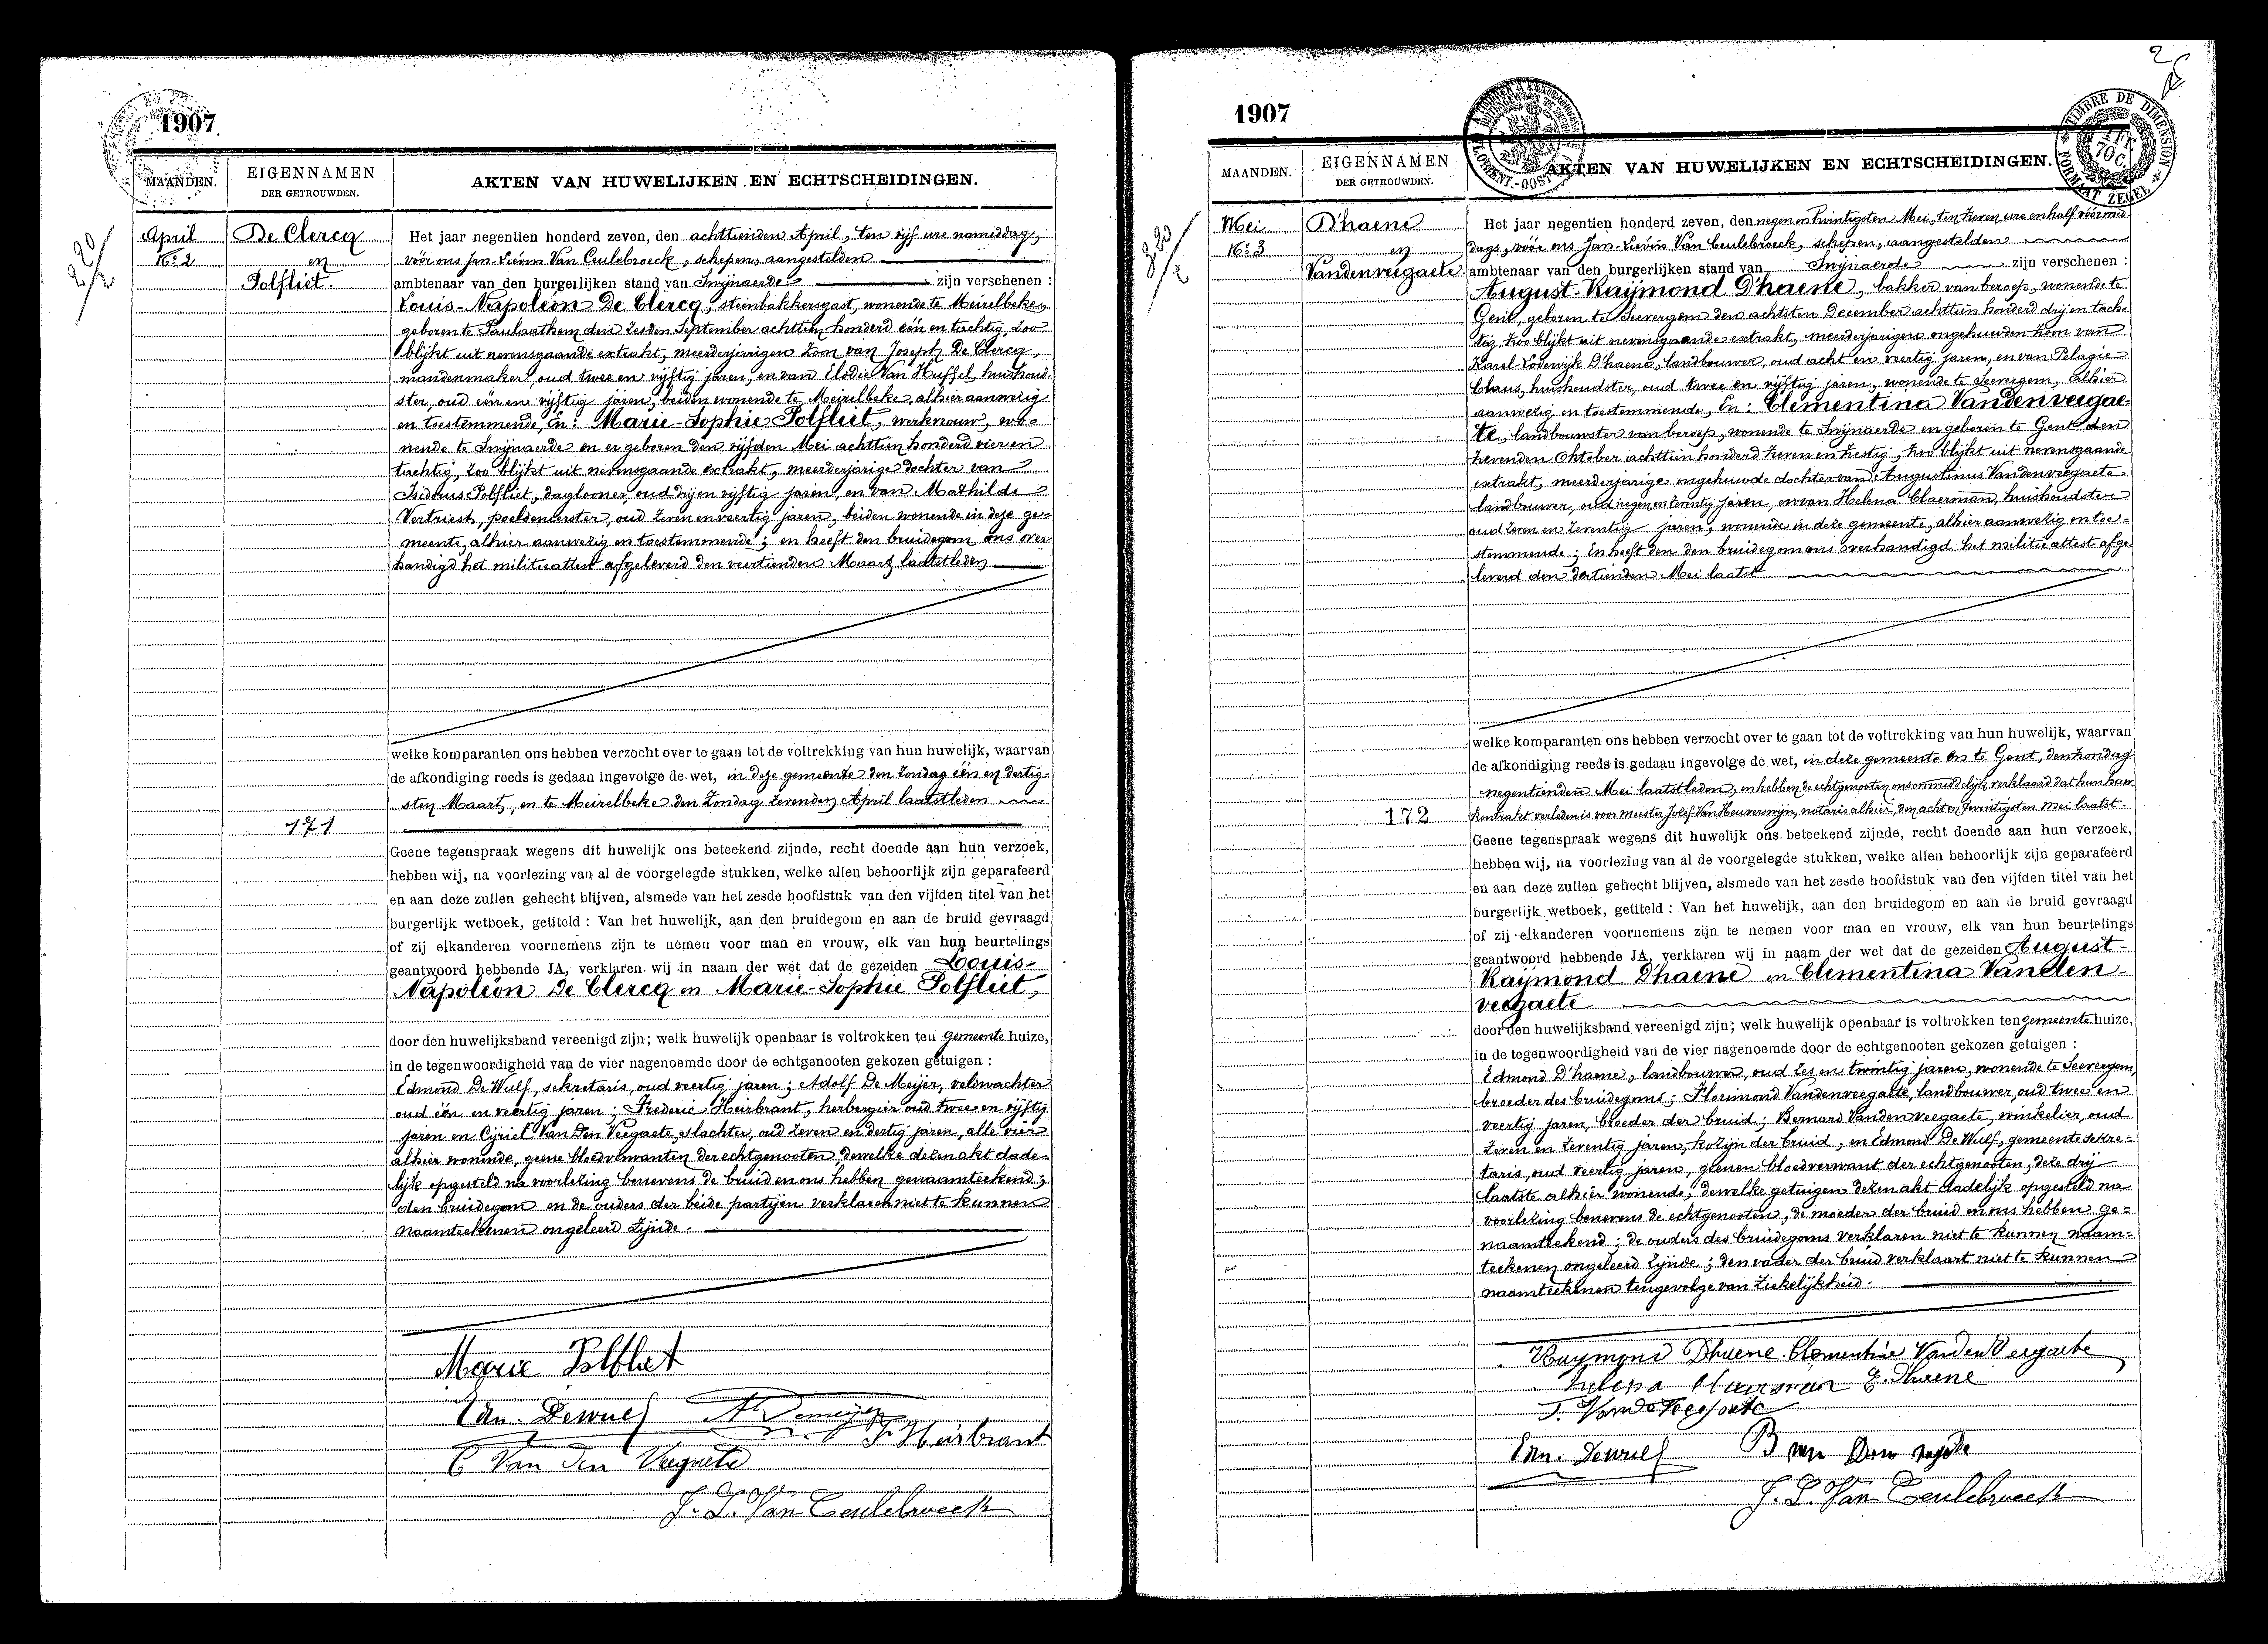 1907
MAANDEN.
EIGENNAMEN
DER GETROUWDEN.
AKTEN VAN HUWELIJKEN EN ECHTSCHEIDINGEN.
April
No 2
De Clercq
en
Polfliet.
Het jaar negentien honderd zeven, den achttienden April, ten vijf ure namiddag,
vóór ons Jan-Lievin Van Ceulebroeck, schepen, aangestelden
ambtenaar van den burgerlijken stand van Swijnaerde zijn verschenen :
Louis-Napoléon De Clercq, steenbakkersgast, wonende te Meirelbeke,
geboren te Paulaathem den zesden September achttien honderd één en tachtig, zoo
blijkt uit nevensgaande extrakt, meerderjarigen zoon van Joseph De Clercq,
mandenmaker, oud twee en vijftig jaren, en van Elodie Van Huffel, huishoud-
ster, oud één en vijftig jaren, beiden wonende te Meirelbeke, alhier aanwezig
en toestemmende, En: Marie-Sophie Polfliet, werkvrouw, wo-
nende te Swijnaerde en er geboren den vijfden Mei achttien honderd vier en
tachtig, zoo blijkt uit nevensgaande extrakt, meerderjarige dochter van
Isidorus Polfliet, daglooner, oud drij en vijftig jaren, en van Mathilde
Vertriest, oud zeven en veertig jaren, beiden wonende in deze ge-
meente, alhier aanwezig en toestemmende; en heeft den bruidegom ons over-
handigd het militieattest afgeleverd den veertienden Maart laatstleden
welke komparanten ons hebben verzocht over te gaan tot de voltrekking van hun huwelijk, waarvan
de afkondiging reeds is gedaan ingevolge de wet, in deze gemeente den Zondag één en dertig-
sten Maart, en te Meirelbeke den Zondag zevenden April laatstleden
171
Geene tegenspraak wegens dit huwelijk ons beteekend zijnde, recht doende aan hun verzoek,
hebben wij, na voorlezing van al de voorgelegde stukken, welke allen behoorlijk zijn geparafeerd
en aan deze zullen gehecht blijven, alsmede van het zesde hoofdstuk van den vijfden titel van het
burgerlijk wetboek, getiteld : Van het huwelijk, aan den bruidegom en aan de bruid gevraagd
of zij elkanderen voornemens zijn te nemen voor man en vrouw, elk van hun beurtelings
geantwoord hebbende JA, verklaren wij in naam der wet dat de gezeiden Louis-
Napoléon De Clercq en Marie-Sophie Polfliet,
door den huwelijksband vereenigd zijn; welk huwelijk openbaar is voltrokken ten gemeente huize,
in de tegenwoordigheid van de vier nagenoemde door de echtgenooten gekozen getuigen :
Edmond De Wulf, sekretaris, oud veertig jaren; Adolf De Meijer, veldwachter
oud één en veertig jaren; Frederic Heirbrant, herbergier oud twee en vijftig
jaren en Cijriel Van Den Veegaete, slachter, oud zeven en dertig jaren, alle vier
alhier wonende, geene bloedverwanten der echtgenooten, dewelke dezen akt dade-
lijk opgesteld na voorlezing benevens de bruid en ons hebben genaamteekend;
den bruidegom en de ouders der beide partijen verklaren niet te kunnen
naamteekenen ongeleerd zijnde.
Marie Polfliet
Edm. Dewulf A. Demeijer
F. Heirbrant
C Van den Veegaete
J. L. Van Ceulebroeck
1907
TIMBRE DE DIMENSION
FORMAAT ZEGEL
MAANDEN.
EIGENNAMEN
DER GETROUWDEN.
AKTEN VAN HUWELIJKEN EN ECHTSCHEIDINGEN.
Mei
No 3
D'haene
en
Vandenveegaete.
Het jaar negentien honderd zeven, den negen en twintigsten Mei, ten zeven ure en half vóórmid-
dags, vóór ons Jan-Lievin Van Ceulebroeck, schepen, aangestelden
ambtenaar van den burgerlijken stand van Swijnaerde zijn verschenen :
August-Raijmond D'haene, bakker van beroep, wonende te
Gent, geboren te Seevergem den achtsten December achttien honderd drij en tach-
tig, zoo blijkt uit nevensgaande extrakt, meerderjarigen ongehuwden zoon van
Karel-Lodewijk D'haene, landbouwer, oud acht en veertig jaren, en van Pelagie
Claus, huishoudster, oud twee en vijftig jaren, wonende te Seevergem, alhier
aanwezig en toestemmende, En: Clementina Vandenveegae-
te, landbouwster van beroep, wonende te Swijnaerde en geboren te Gent den
zevenden Oktober achttien honderd zeven en zestig, zoo blijkt uit nevensgaande
extrakt, meerderjarige ongehuwde dochter van Augustinus Vandenveegaete
landbouwer, oud negen en zeventig jaren, en van Helena Claerman, huishoudster
oud zeven en zeventig jaren, wonende in deze gemeente, alhier aanwezig en toe-
stemmende; En heeft den den bruidegom ons overhandigd het militie attest afge-
leverd den dertienden Mei laatst
welke komparanten ons hebben verzocht over te gaan tot de voltrekking van hun huwelijk, waarvan
de afkondiging reeds is gedaan ingevolge de wet, in deze gemeente en te Gent, den Zondag
negentienden Mei laatstleden, en hebben de echtgenooten ons onmiddelijk verklaard dat hun huw
172
kontrakt verleden is voor meester Jozef Van Heuverswijn, notaris alhier, den acht en twintigsten Mei laatst.
Geene tegenspraak wegens dit huwelijk ons beteekend zijnde, recht doende aan hun verzoek,
hebben wij, na voorlezing van al de voorgelegde stukken, welke allen behoorlijk zijn geparafeerd
en aan deze zullen gehecht blijven, alsmede van het zesde hoofdstuk van den vijfden titel van het
burgerlijk wetboek, getiteld : Van het huwelijk, aan den bruidegom en aan de bruid gevraagd
of zij elkanderen voornemens zijn te nemen voor man en vrouw, elk van hun beurtelings
geantwoord hebbende JA, verklaren wij in naam der wet dat de gezeiden August-
Raijmond D'haene en Clementina Vanden-
veegaete
door den huwelijksband vereenigd zijn; welk huwelijk openbaar is voltrokken ten gemeente huize,
in de tegenwoordigheid van de vier nagenoemde door de echtgenooten gekozen getuigen :
Edmond D'haene, landbouwer, oud zes en twintig jaren, wonende te Seevergem,
broeder des bruidegoms; Florimond Vandenveegaete, landbouwer, oud twee en
veertig jaren, broeder der bruid; Bernard Vandenveegaete, winkelier, oud
zeven en zeventig jaren, kozijn der bruid, en Edmond De Wulf, gemeente sekre-
taris, oud veertig jaren, geenen bloedverwant der echtgenooten, deze drij
laatste alhier wonende, dewelke getuigen dezen akt dadelijk opgesteld na
voorlezing benevens de echtgenooten, de moeder der bruid en ons hebben ge-
naamteekend; de ouders des bruidegoms verklaren niet te kunnen naam-
teekenen ongeleerd zijnde; den vader der bruid verklaart niet te kunnen
naamteekenen tengevolge van ziekelijkheid.
Raymond Dhaene Clementine Vanden Veegaete
Helena Claerman E. Dhaene
F. Vande Veegaete
Edm. Dewulf B van Den
J. L. Van Ceulebroeck